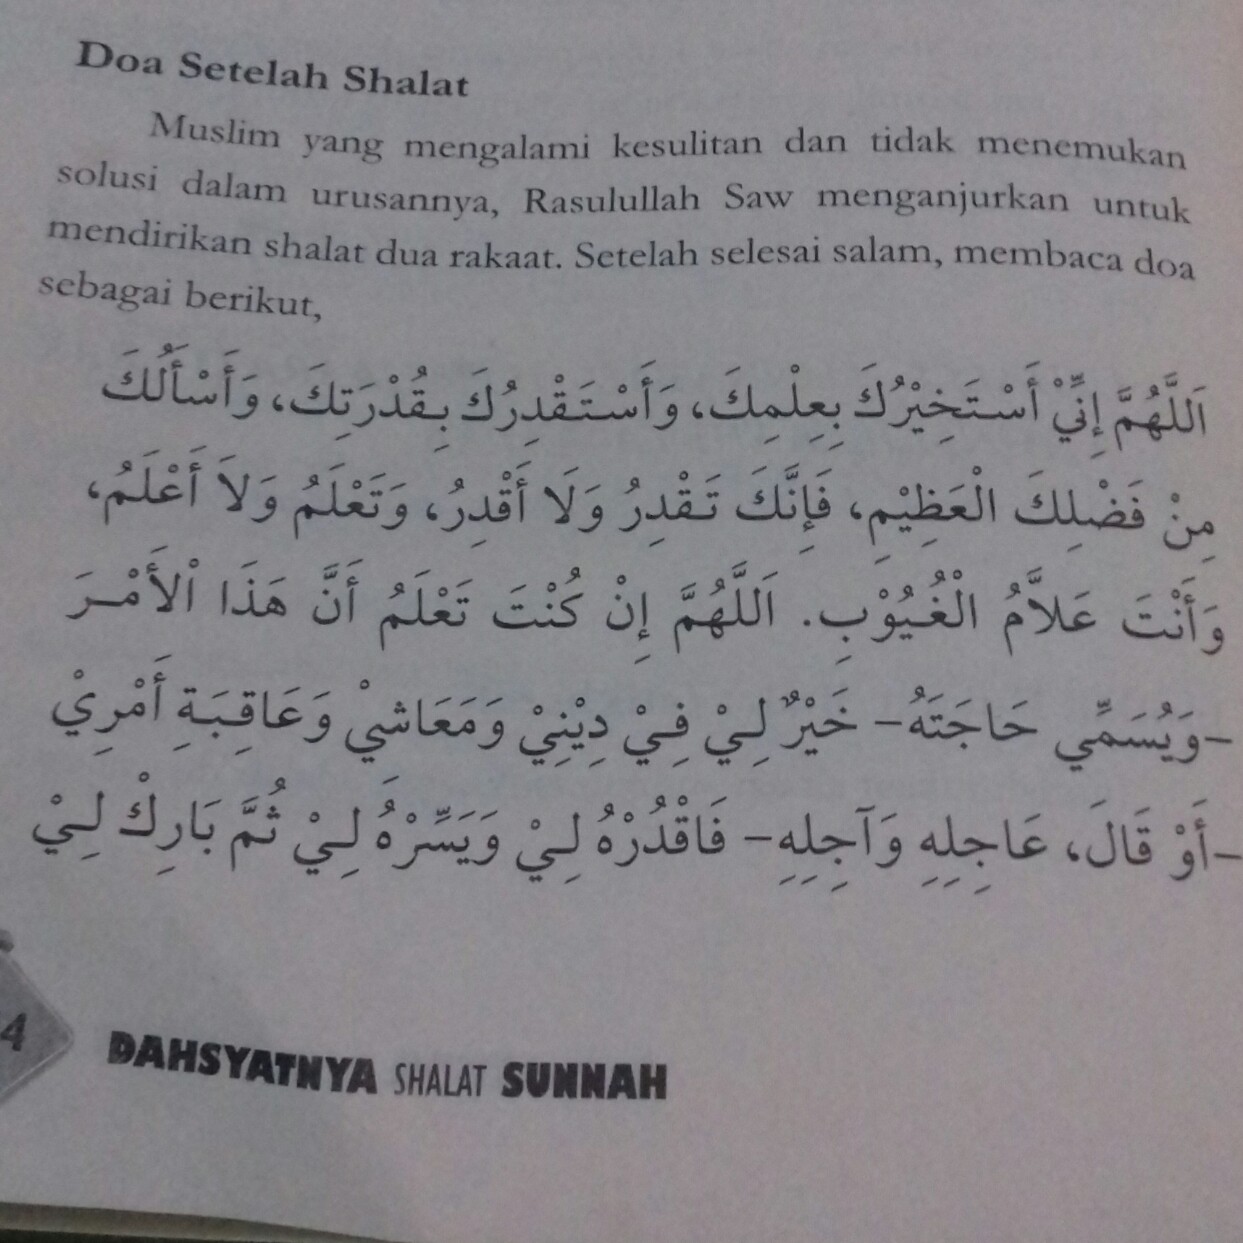 Doa Setelah Shalat
Muslim yang mengalami kesulitan dan tidak menemukan
solusi dalam urusannya, Rasulullah Saw menganjurkan untuk
mendirikan shalat dua rakaat. Setelah selesai salam, membaca doa
sebagai berikut,
اَللَّهُمَّ إِنِّيْ أَسْتَخِيْرُكَ بِعِلْمِكَ، وَأَسْتَقْدِرُكَ بِقُدْرَتِكَ، وَأَسْأَلُكَ
مِنْ فَضْلِكَ الْعَظِيْمِ، فَإِنَّكَ تَقْدِرُ وَلَا أَقْدِرُ، وَتَعْلَمُ وَلاَ أَعْلَمُ،
وَأَنْتَ عَلاَّمُ الْغُيُوْبِ. اَللَّهُمَّ إِنْ كُنْتَ تَعْلَمُ أَنَّ هَذَا اْلأَمْرَ
-وَيُسَمِّي حَاجَتَهُ- خَيْرٌ لِيْ فِيْ دِيْنِيْ وَمَعَاشِيْ وَعَاقِبَةِ أَمْرِيْ
-أَوْ قَالَ، عَاجِلِهِ وَآجِلِهِ- فَاقْدُرْهُ لِيْ وَيَسِّرْهُ لِيْ ثُمَّ بَارِكْ لِيْ
4
DAHSYATNYA SHALAT SUNNAH